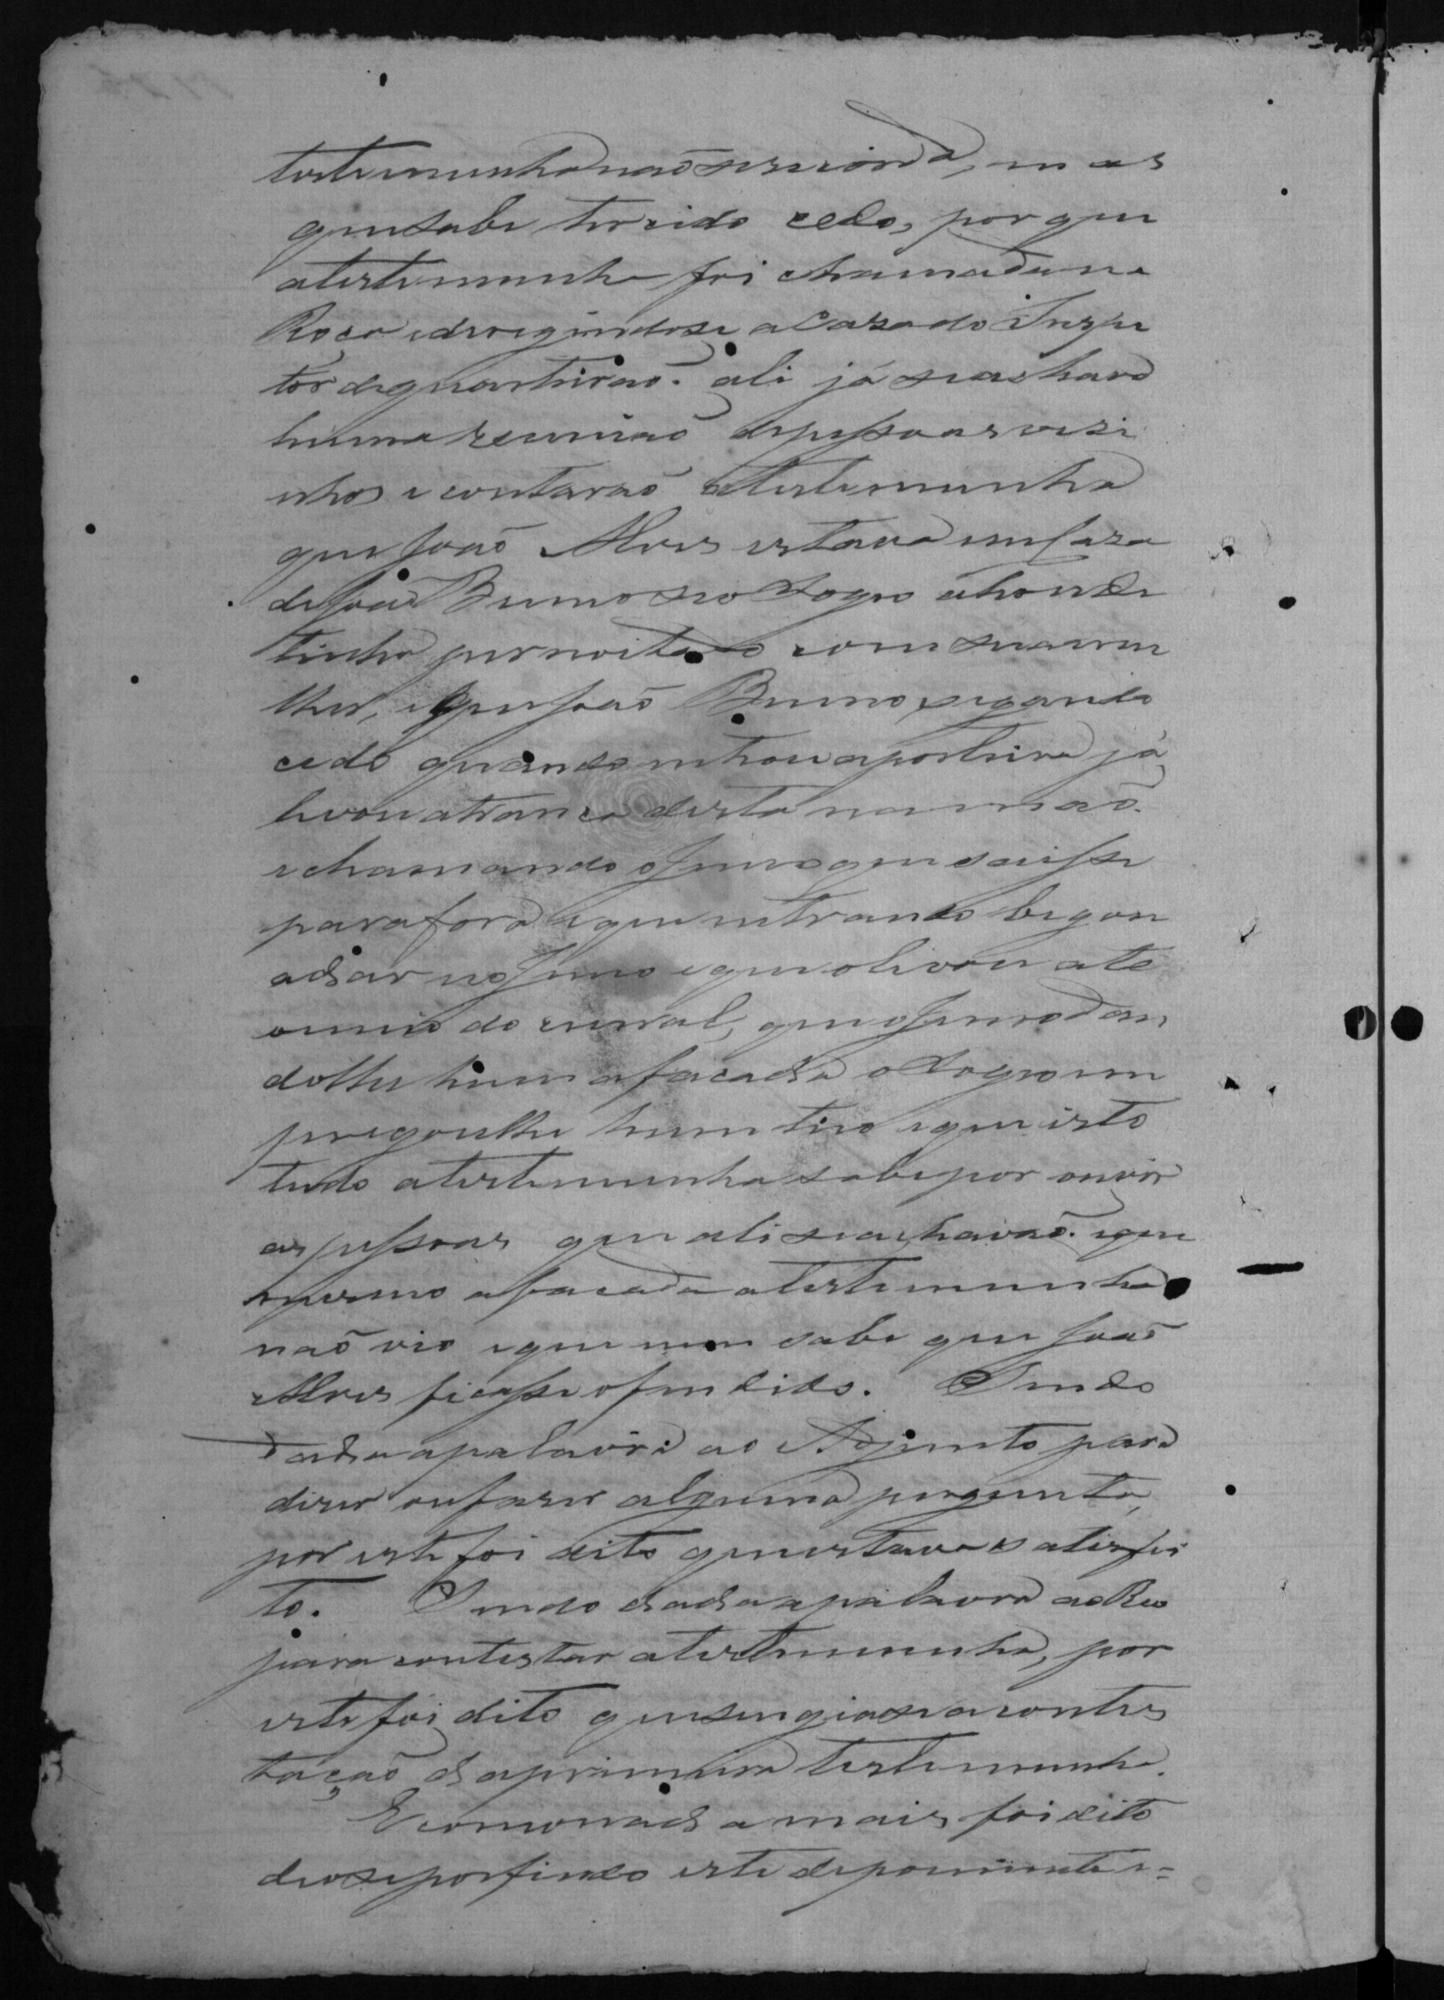 testemunha não se recorda, mas
que sabe ter sido cedo, por que
atestemunha foi chamada na
Roça ederegindose a Casa do Inspe
tor de quarteirão. ali já seachava
huma reunião depessoas vesi
nhos e contarão atestemunha
que João Alves estava em Casa
de João Bueno seo Sogro ahonde
tinha pernoitado com sua mu
lher, eque João Bueno xegando
cedo quando entrou aporteira já
levou atranca desta na mão.
echamando o Genro que saisse
parafora eque entrando pegou
adar no Genro eque olevou ate
omeio do curral, que o Genro dan
dolhe huma facada o Sogro em
pregoulhe hum tiro eque isto
tudo atestemunha sabe por ouvir
as pessoas que ali seachavão. eque
mesmo afacada atestemunha
não vio eque nem sabe que João
Alves ficasse ofendido. Sendo
dada apalavra ao Adjunto para
diser ou faser alguma pergunta,
por este foi dito que estava satisfei
to. Sendo dada apalavra ao Reo
para contestar atestemunha, por
este foi dito que sengia sua contes
tação da primeira testemunha.
E como nada mais foi dito
deose por findo este depoimento e=